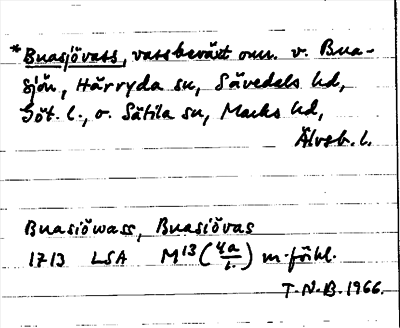 *Buasjövass, vassbeväxt omr. v. Bua-
sjön, Härryda sn, Sävedals hd,
Göt. l., o. Sätila sn, Marks hd,
Älvsb. l.
Buasiöwass, Buasiövas
1713 LSA M13 (4a/1.) m. förkl.
T.N.B. 1966.